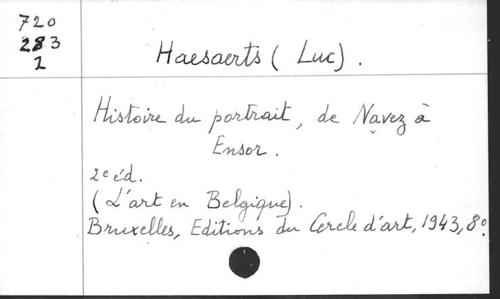 720
283
1
Haesaerts (Luc).
Histoire du portrait, de Navez à
Ensor.
2e éd.
(L'art en Belgique).
Bruxelles, Editions du Cercle d'art, 1943, 8º.